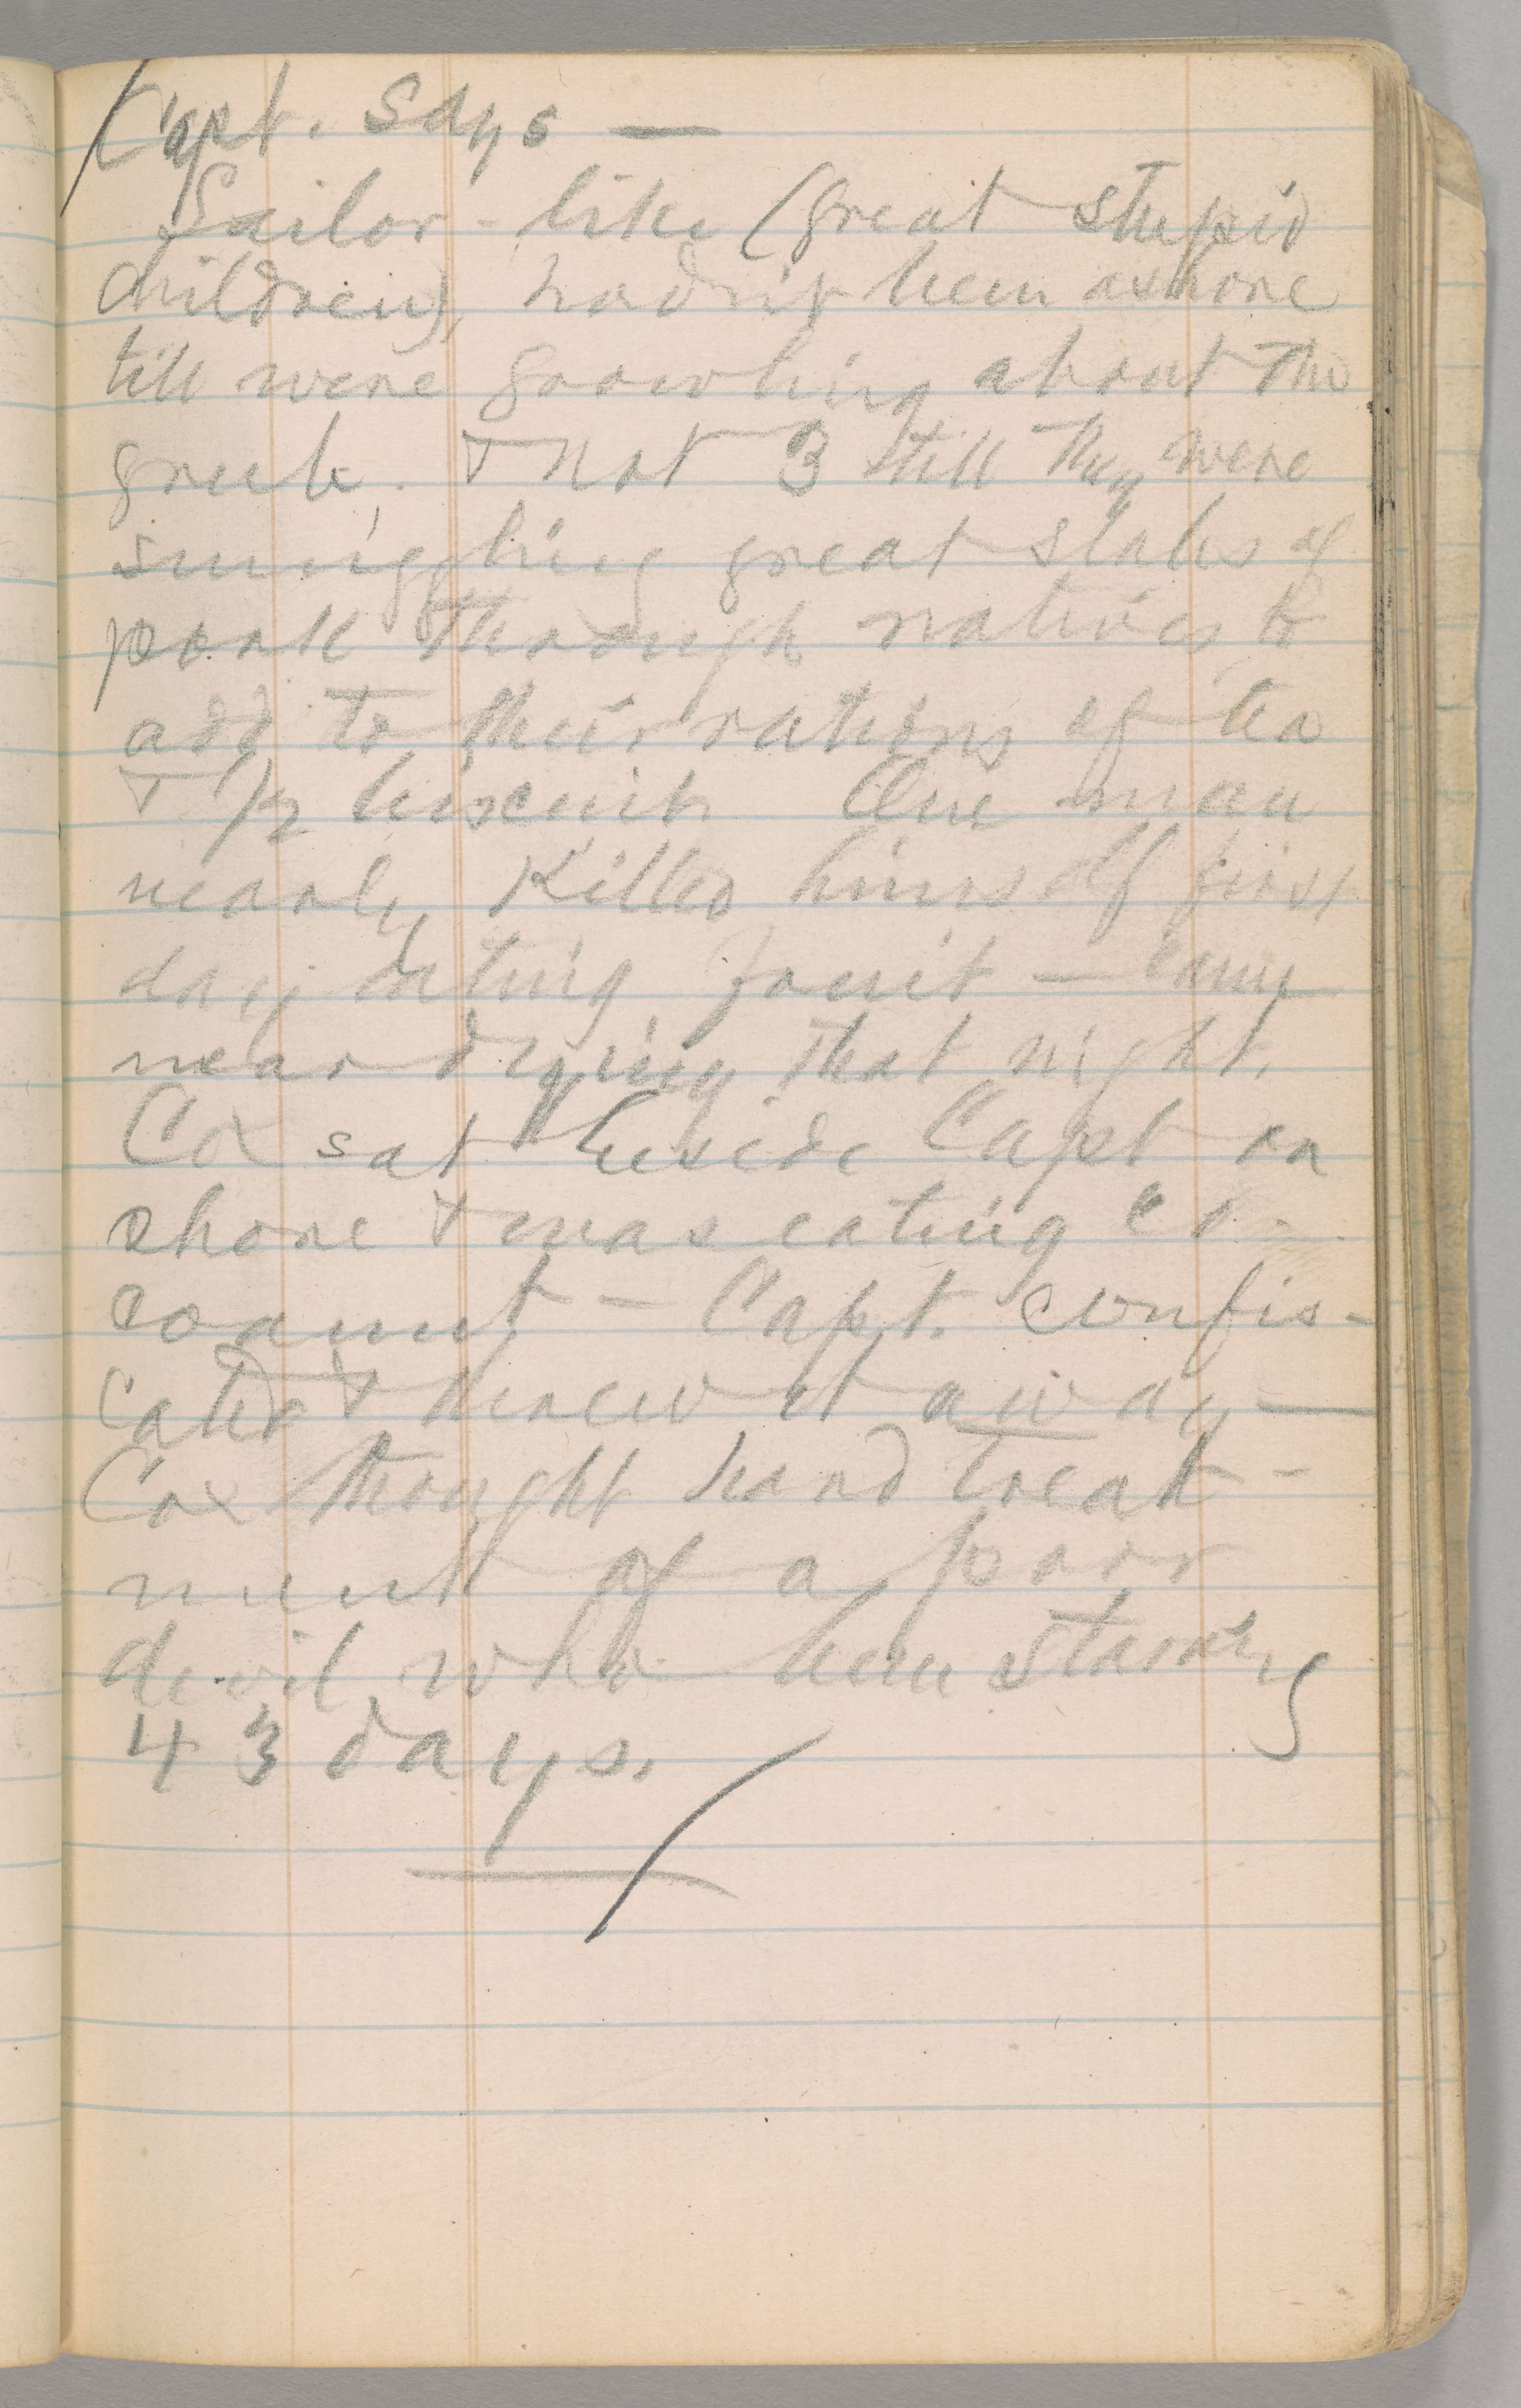 Capt. Says —
Sailor-like (great stupid
children), hadn't been ashore
till were growling about the
grub. & not 3 till they were
smuggling great slabs of
pork through natives to
add to their rations of tea
& 1/2 biscuit. One man
nearly killed himself first
day eating fruit — came
near dying that night.
Cox sat beside Capt on
shore & was eating co-
coanut — Capt. confis-
cated & threw it away —
Cox thought hard treat-
ment of a poor
devil who been starving
43 days.